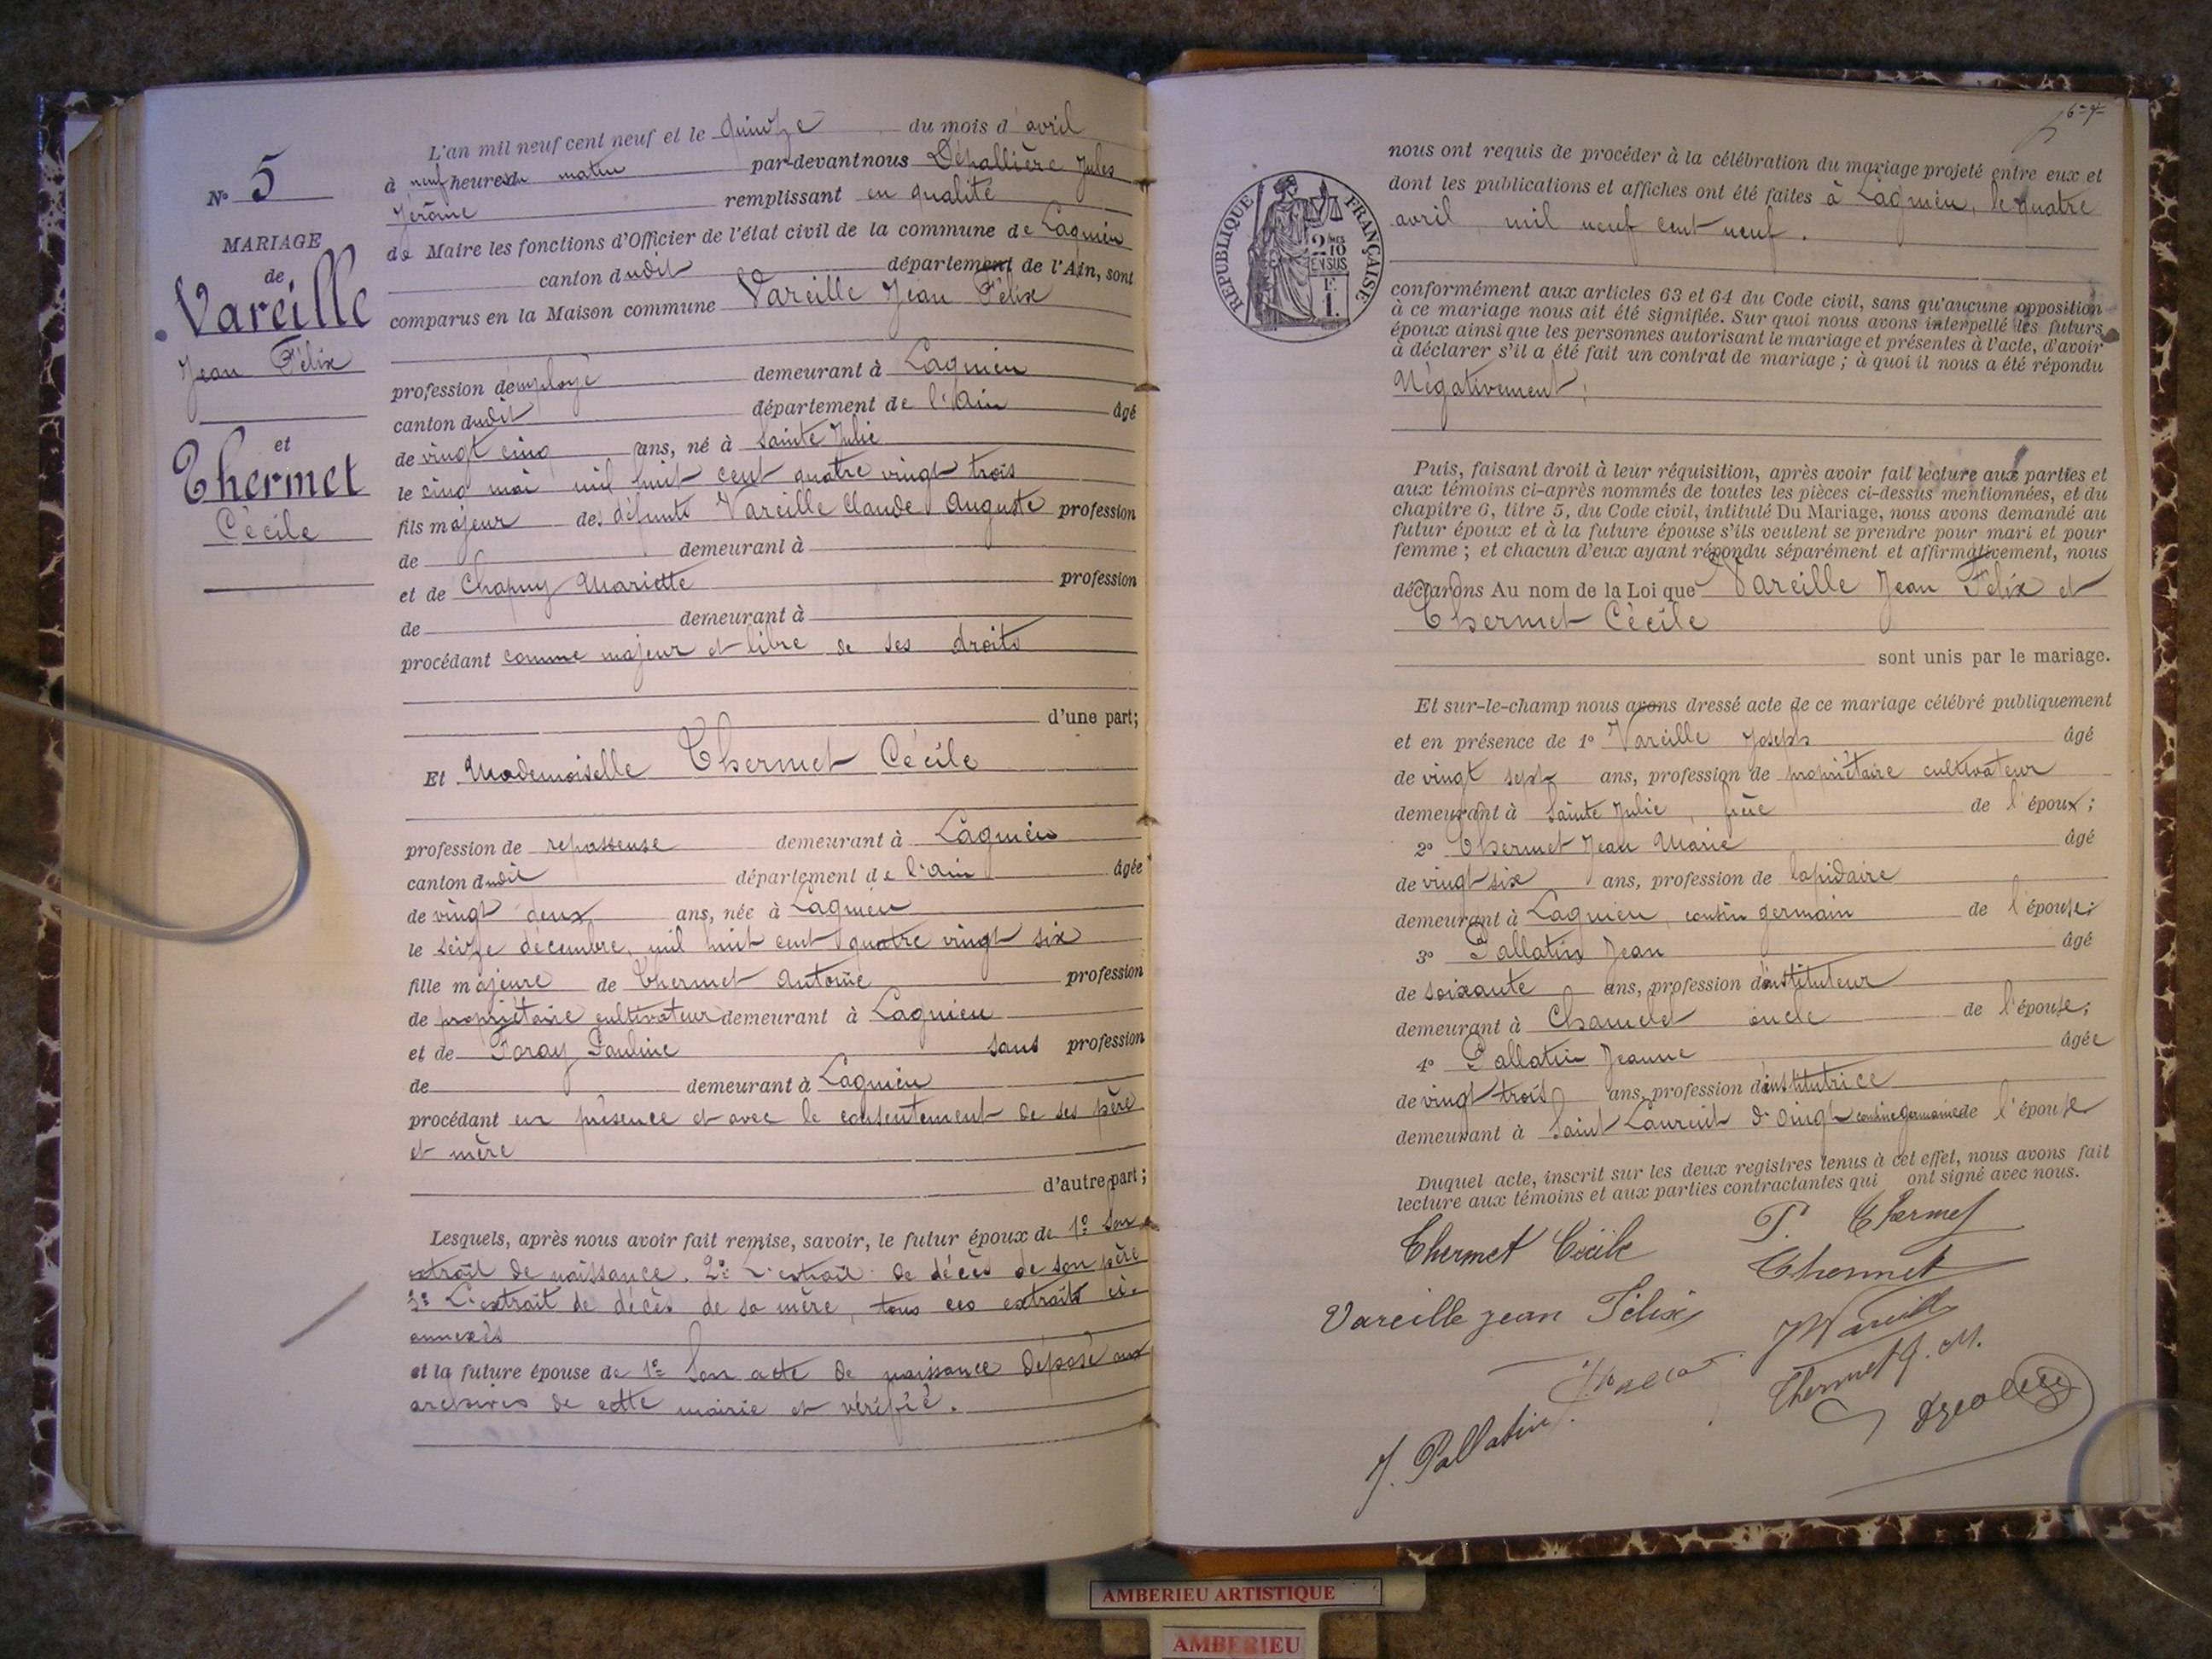 N° 5
MARIAGE
de
Vareille
Jean Félix
et
Thermet
Cécile
L'an mil neuf cent neuf et le quinze du mois d'avril
à neuf heures du matin par-devant nous Dépallière Jules
Jérôme remplissant en qualité
de Maire les fonctions d'Officier de l'état civil de la commune de Lagnieu
canton dudit département de l'Ain, sont
comparus en la Maison commune Vareille Jean Félix
profession d'employé demeurant à Lagnieu
canton dudit département de l'Ain âgé
de vingt cinq ans, né à Sainte Julie
le cinq mai mil huit cent quatre vingt trois
fils majeur des défunts Vareille Claude Auguste profession
de demeurant à
et de Chapuy Mariette profession
de demeurant à
procédant comme majeur et libre de ses droits
d'une part;
Et Mademoiselle Thermet Cécile
profession de repasseuse demeurant à Lagnieu
canton dudit département de l'Ain âgée
de vingt deux ans, née à Lagnieu
le seize décembre, mil huit cent quatre vingt six
fille majeure de Thermet Antoine profession
de propriétaire cultivateur demeurant à Lagnieu
et de Foray Pauline sans profession
de demeurant à Lagnieu
procédant en présence et avec le consentement de ses père
et mère
d'autre part;
Lesquels, après nous avoir fait remise, savoir, le futur époux de 1° Son
extrait de naissance. 2° L'extrait de décès de son père
3° L'extrait de décès de sa mère, tous ces extraits ci-
annexés
et la future épouse de 1° Son acte de naissance déposé aux
archives de cette mairie et vérifié.
nous ont requis de procéder à la célébration du mariage projeté entre eux et
dont les publications et affiches ont été faites à Lagnieu, le quatre
avril mil neuf cent neuf.
RÉPUBLIQUE FRANÇAISE
2/10
EN SUS
1.
conformément aux articles 63 et 64 du Code civil, sans qu'aucune opposition
à ce mariage nous ait été signifiée. Sur quoi nous avons interpellé les futurs
époux ainsi que les personnes autorisant le mariage et présentes à l'acte, d'avoir
à déclarer s'il a été fait un contrat de mariage ; à quoi il nous a été répondu
Négativement;
Puis, faisant droit à leur réquisition, après avoir fait lecture aux parties et
aux témoins ci-après nommés de toutes les pièces ci-dessus mentionnées, et du
chapitre 6, titre 5, du Code civil, intitulé Du Mariage, nous avons demandé au
futur époux et à la future épouse s'ils veulent se prendre pour mari et pour
femme ; et chacun d'eux ayant répondu séparément et affirmativement, nous
déclarons Au nom de la Loi que Vareille Jean Félix et
Thermet Cécile
sont unis par le mariage.
Et sur-le-champ nous avons dressé acte de ce mariage célébré publiquement
et en présence de 1° Vareille Joseph âgé
de vingt sept ans, profession de propriétaire cultivateur
demeurant à Sainte Julie, frère de l'époux;
2° Thermet Jean Marie âgé
de vingt six ans, profession de lapidaire
demeurant à Lagnieu, cousin germain de l'épouse;
3° Pallatin Jean âgé
de soixante ans, profession d'instituteur
demeurant à Chamelet oncle de l'épouse;
4° Pallatin Jeanne âgée
de vingt trois ans, profession d'institutrice
demeurant à Saint Laurent d'Oingt cousine germaine de l'épouse
Duquel acte, inscrit sur les deux registres tenus à cet effet, nous avons fait
lecture aux témoins et aux parties contractantes qui ont signé avec nous.
Thermet Cécile P. Thermet
Thermet
Vareille jean Félix J Vareille
Thermet J. M.
J. Pallatin
AMBERIEU ARTISTIQUE
AMBERIEU